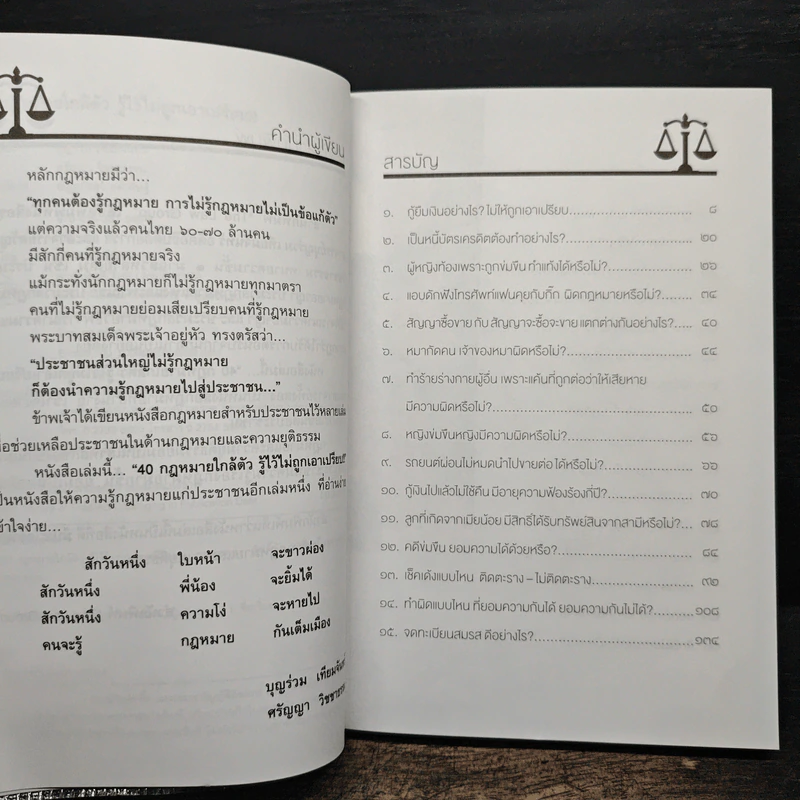 คำนำผู้เขียน
หลักกฎหมายมีว่า...
“ทุกคนต้องรู้กฎหมาย การไม่รู้กฎหมายไม่เป็นข้อแก้ตัว”
แต่ความจริงแล้วคนไทย ๖๐-๗๐ ล้านคน
มีสักกี่คนที่รู้กฎหมายจริง
แม้กระทั่งนักกฎหมายก็ไม่รู้กฎหมายทุกมาตรา
คนที่ไม่รู้กฎหมายย่อมเสียเปรียบคนที่รู้กฎหมาย
พระบาทสมเด็จพระเจ้าอยู่หัว ทรงตรัสว่า...
“ประชาชนส่วนใหญ่ไม่รู้กฎหมาย
ก็ต้องนำความรู้กฎหมายไปสู่ประชาชน...”
ข้าพเจ้าได้เขียนหนังสือกฎหมายสำหรับประชาชนไว้หลายเล่ม
เพื่อช่วยเหลือประชาชนในด้านกฎหมายและความยุติธรรม
หนังสือเล่มนี้... “40 กฎหมายใกล้ตัว รู้ไว้ไม่ถูกเอาเปรียบ!”
เป็นหนังสือให้ความรู้กฎหมายแก่ประชาชนอีกเล่มหนึ่ง ที่อ่านง่าย
เข้าใจง่าย...
สักวันหนึ่ง ใบหน้า จะขาวผ่อง
สักวันหนึ่ง พี่น้อง จะยิ้มได้
สักวันหนึ่ง ความโง่ จะหายไป
คนจะรู้ กฎหมาย กันเต็มเมือง
บุญร่วม เทียมจันทร์
ศรัญญา
สารบัญ
๑. กู้ยืมเงินอย่างไร? ไม่ให้ถูกเอาเปรียบ........ ๘
๒. เป็นหนี้บัตรเครดิตต้องทำอย่างไร?........ ๒๐
๓. ผู้หญิงท้องเพราะถูกข่มขืน ทำแท้งได้หรือไม่?........ ๒๖
๔. แอบดักฟังโทรศัพท์แฟนคุยกับกิ๊ก ผิดกฎหมายหรือไม่?........ ๓๔
๕. สัญญาซื้อขาย กับ สัญญาจะซื้อจะขาย แตกต่างกันอย่างไร?..... ๔๐
๖. หมากัดคน เจ้าของหมาผิดหรือไม่?........ ๔๔
๗. ทำร้ายร่างกายผู้อื่น เพราะแค้นที่ถูกต่อว่าให้เสียหาย
มีความผิดหรือไม่?........ ๕๐
๘. หญิงข่มขืนหญิงมีความผิดหรือไม่?........ ๕๖
๙. รถยนต์ผ่อนไม่หมดนำไปขายต่อ ได้หรือไม่?........ ๖๖
๑๐. กู้เงินไปแล้วไม่ใช้คืน มีอายุความฟ้องร้องกี่ปี?........ ๗๐
๑๑. ลูกที่เกิดจากเมียน้อย มีสิทธิ์ได้รับทรัพย์สินจากสามีหรือไม่?... ๗๘
๑๒. คดีข่มขืน ยอมความได้ด้วยหรือ?........ ๘๔
๑๓. เช็คเด้งแบบไหน ติดตะราง – ไม่ติดตะราง........ ๙๒
๑๔. ทำผิดแบบไหน ที่ยอมความกันได้ ยอมความกันไม่ได้?........ ๑๐๘
๑๕. จดทะเบียนสมรส ดีอย่างไร?........ ๑๓๔